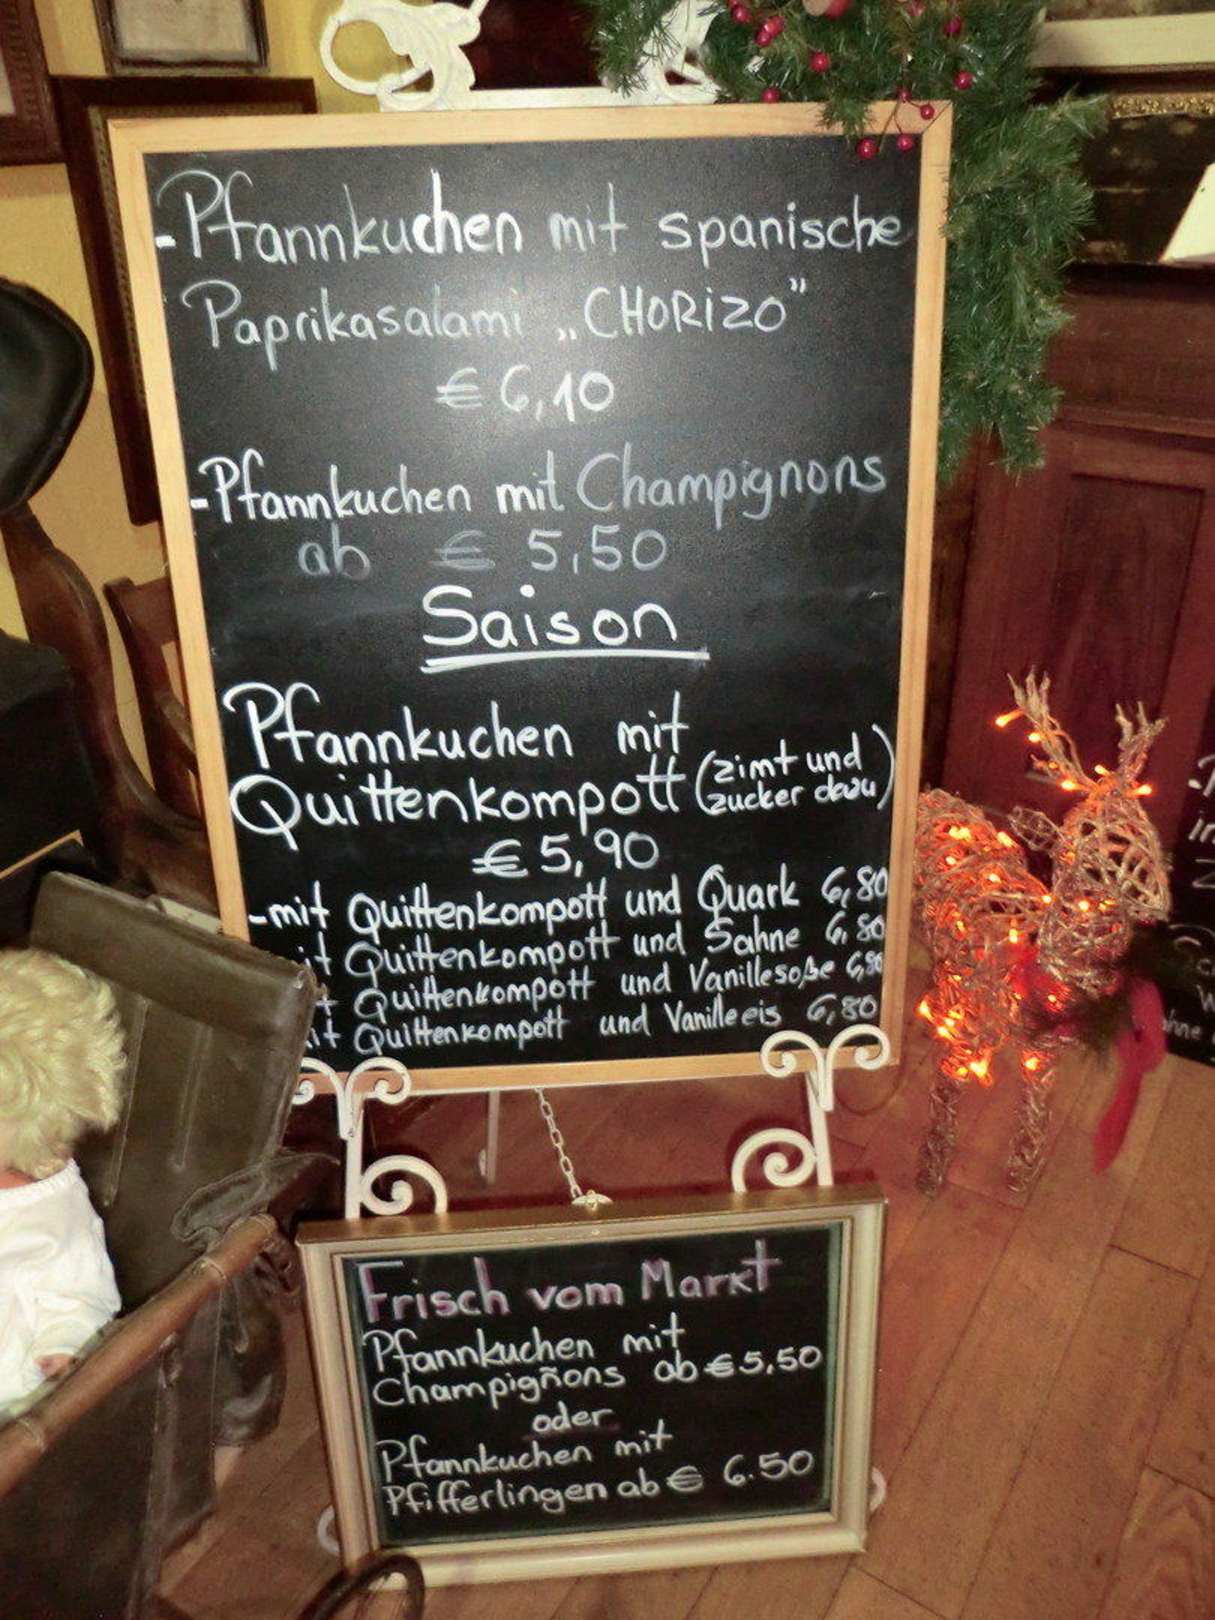 -Pfannkuchen mit spanische
Paprikasalami „CHORIZO”
€ 6,10
-Pfannkuchen mit Champignons
ab € 5,50
Saison
Pfannkuchen mit
Quittenkompott (zimt und
zucker dazu)
€ 5,90
-mit Quittenkompott und Quark 6,80
Quittenkompott und Sahne 6,80
Quittenkompott und Vanillesoße
Quittenkompott und Vanilleeis 6,80
Frisch vom Markt
Pfannkuchen mit
Champigñons ab € 5,50
oder
Pfannkuchen mit
Pfifferlingen ab € 6.50